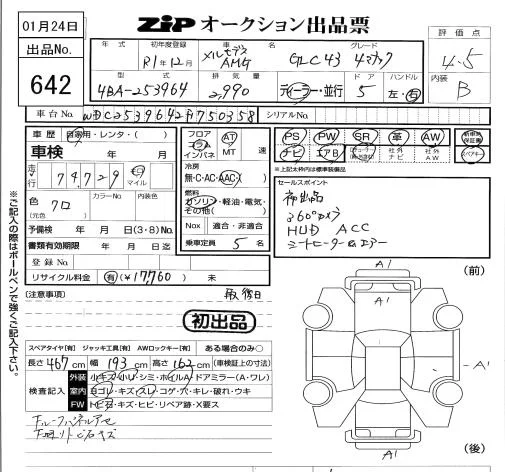 01月24日
ZIP オークション出品票
出品No.
642
年式
初年度登録
R1年12月
車名
メルセデス
AMG
GLC43
グレード
4マチック
評価点
4.5
型式
4BA-253964
排気量
2,990
ディーラー・並行
ドア
5
ハンドル
左・右
内装
B
車台No.
WDC2539642
シリアルNo.
車歴
自家用・レンタ・( )
車検
走行
74,729
マイル
色
クロ
(元色)
カラーNo.
内装色
予備検 年 月(3・8)No.
書類有効期限 年 月 日迄
登録No.
リサイクル料金 有(¥17,760) 未
フロア
コラム
インパネ
AT
MT
速
冷房
無・C・AC・AAC
燃料
ガソリン・軽油・電気・
その他( )
Nox 適合・非適合
乗車定員 5 名
PS
PW
SR
革
AW
新車時保証書
ナビ
エアB
社外ナビ
社外AW
スペアキー
※上記太枠内は標準装備品
セールスポイント
初出品
360°カメラ
HUD ACC
シートヒーター&エアー
※ご記入の際はボールペンで強くご記入下さい。
(注意事項)
取 後日
初出品
スペアタイヤ[有] ジャッキ工具[有] AWロックキー[有] ある場合のみ○
長さ 467 cm 幅 193 cm 高さ 162 cm (車検証上の寸法)
検査記入
外装 小キズ・小U・シミ・ホイルA・ドアミラー(A・ワレ)
室内 ヨゴレ・キズ・スレ・コゲ・穴・キレ・破れ・ウキ
FW トビ石・キズ・ヒビ・リペア跡・X要ス
A1
(前)
A1
A1
A1
(後)